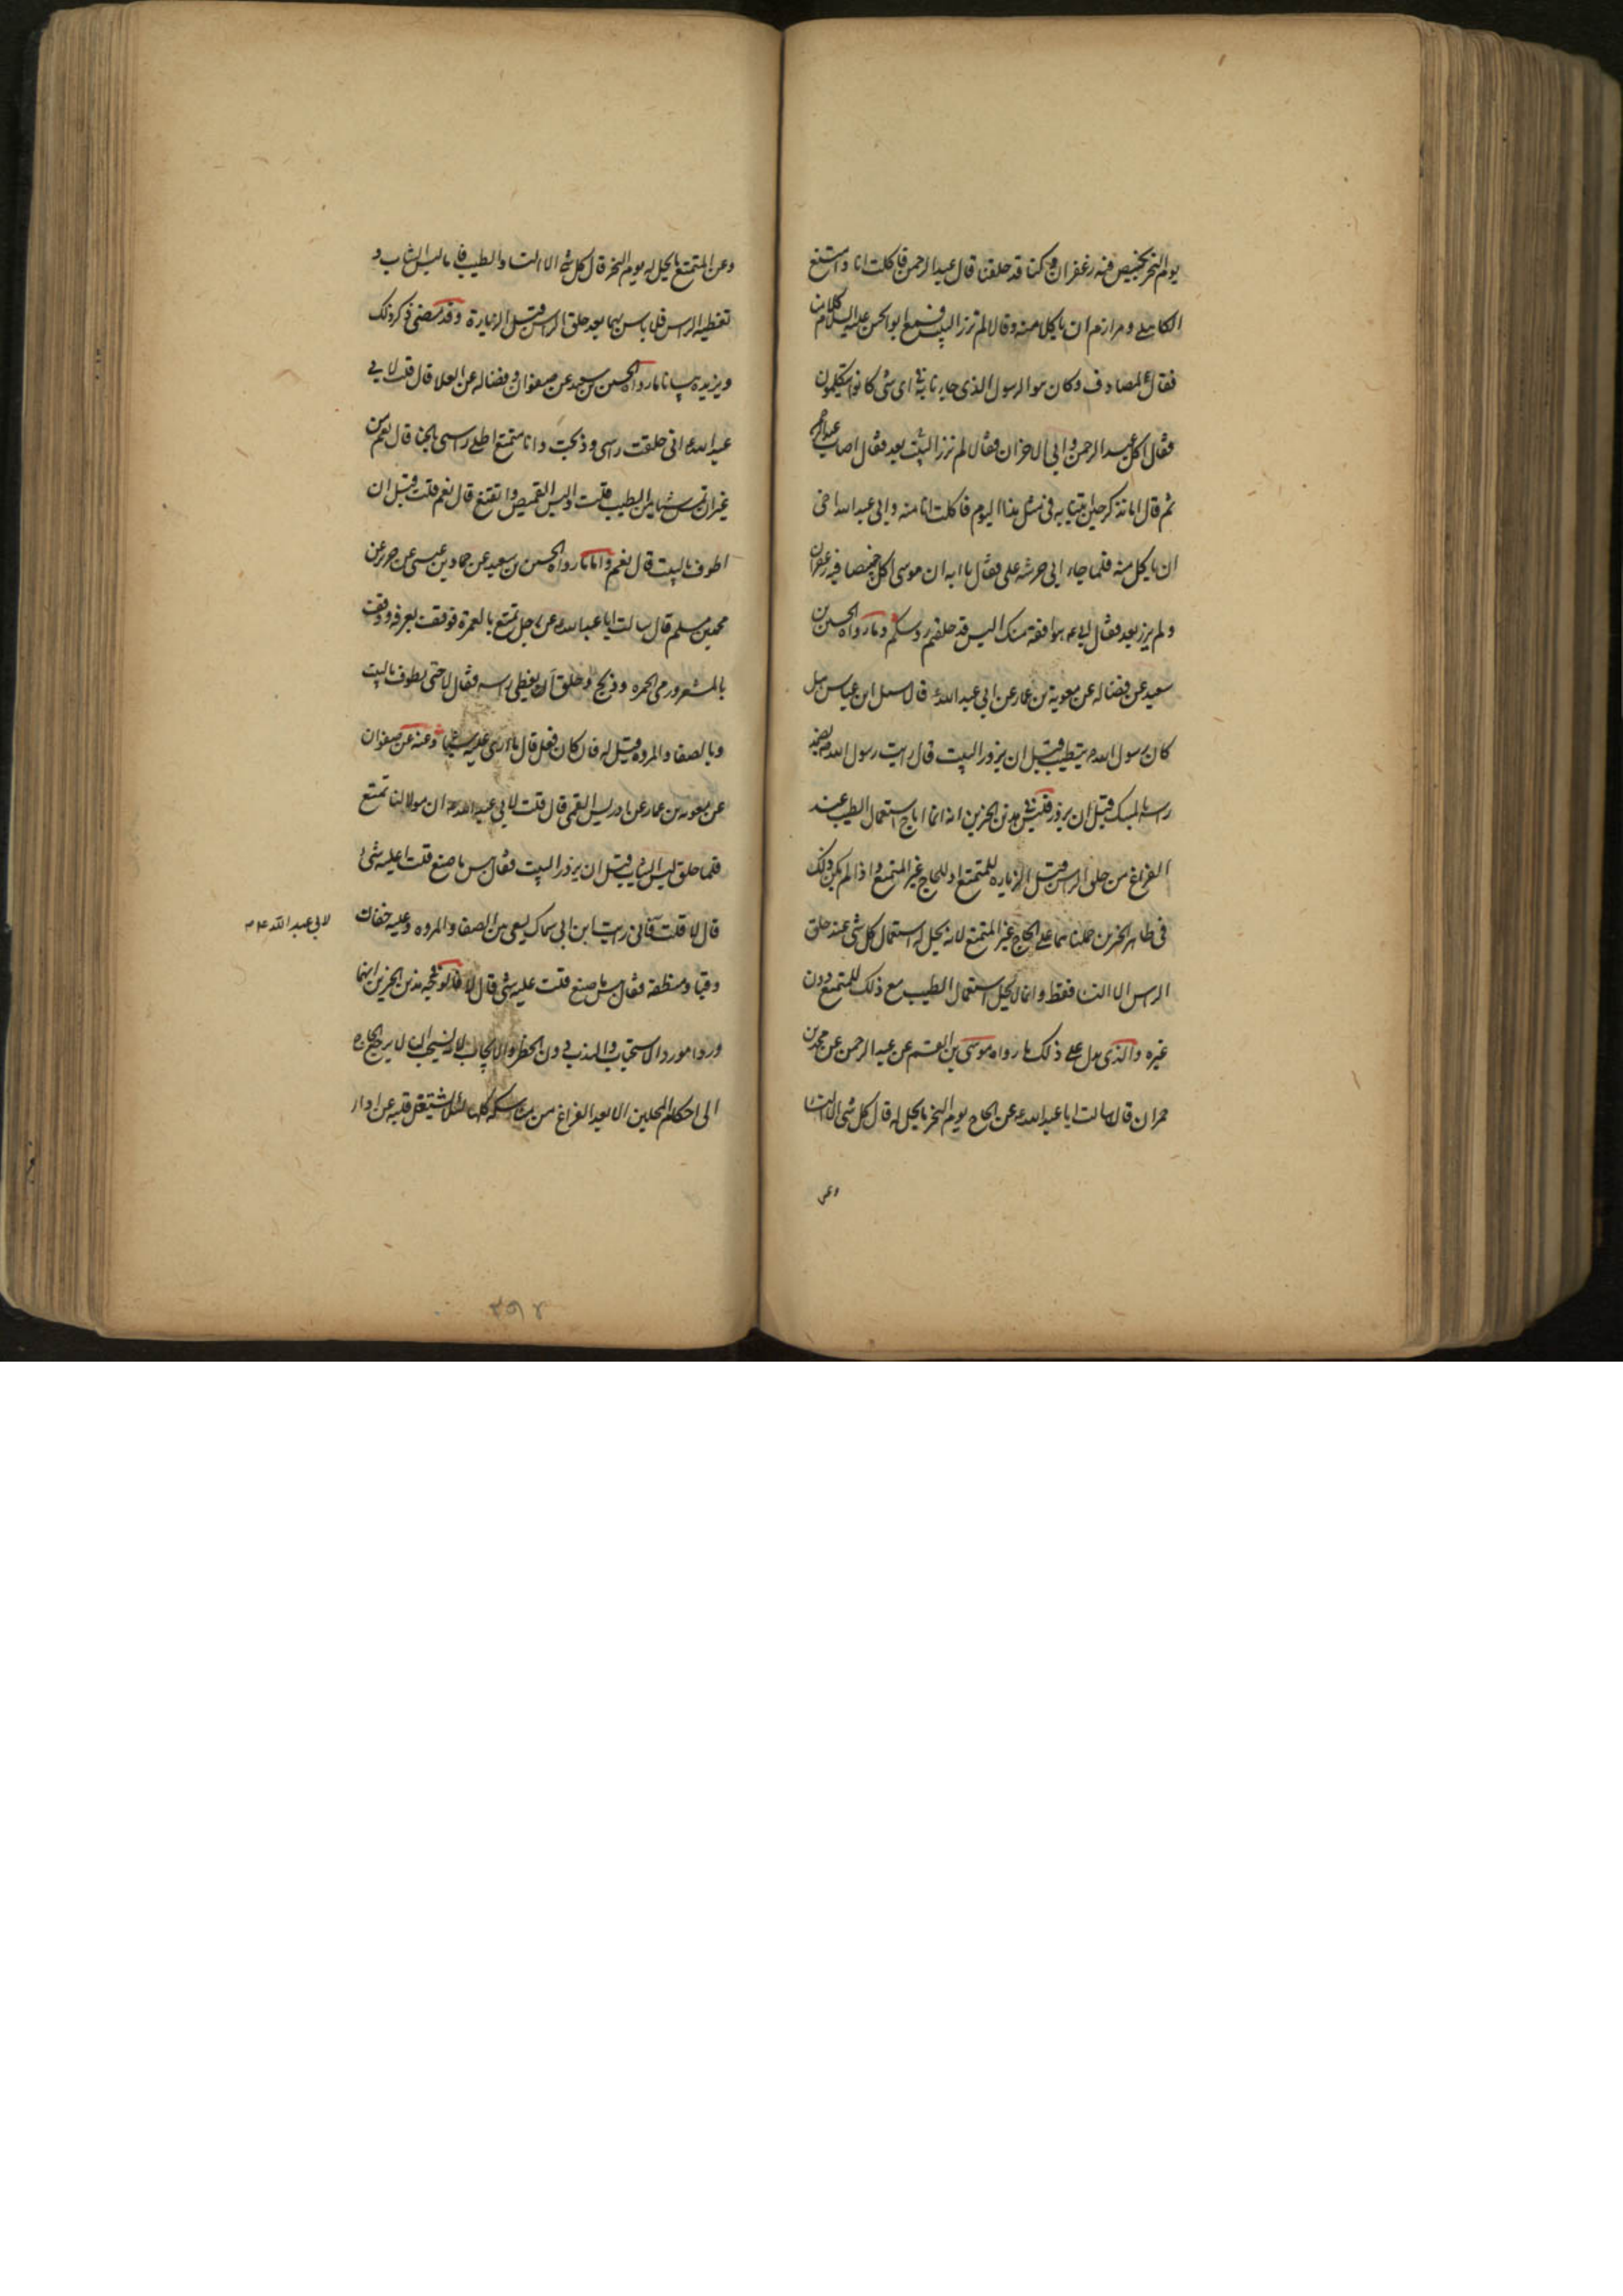 يوم النحر بخبيص فيه زعفران وكنا قد حلقنا قال عبد الرحمن فاكلت انا وامتنع
الكاهلي ومرازم ان ياكلا منه وقالا لم تزر البيت فسمع ابو الحسن عليه السلام كلامنا
فقال لمصادف وكان هو الرسول الذي جاءنا به في اى شئ كانوا يتكلمون
فقال اكل عبد الرحمن وابى الاخران فقالا لم تزر البيت بعد فقال اصاب عبد الرحمن
ثم قال اما تذكر حين اتينا به فى مثل هذا اليوم فاكلت انا منه وابى عبد الله اخى
ان ياكل منه فلما جاء ابى حرشه على فقال يا ابه ان موسى اكل خبيصا فيه زعفران
ولم يزر بعد فقال ابى ع هو افقه منك اليس قد حلقتم رؤسكم وما رواه الحسين بن
سعيد عن فضاله عن معوية بن عمار عن ابى عبد الله ع قال سئل ابن عباس هل
كان رسول الله ص يتطيب قبل ان يزور البيت قال رايت رسول الله ص يضمد
راسه بالمسك قبل ان يزور فليس فى هذين الخبرين انه انما اباح استعمال الطيب عند
الفراغ من حلق الراس وقبل الزياره للمتمتع او للحاج غير المتمتع واذا لم يكن ذلك
فى ظاهر الخبرين حملناهما على الحاج غير المتمتع لانه يحل له استعمال كل شى عند حلق
الراس الا النسا فقط وانما لا يحل استعمال الطيب مع ذلك للمتمتع دون
غيره والذى يدل على ذلك ما رواه موسى بن القسم عن عبد الرحمن عن محمد بن
حمران قال سالت ابا عبد الله ع عن الحاج يوم النحر ما يحل له قال كل شى الا النسا
وعن
وعن المتمتع ما يحل له يوم النحر قال كل شئ الا النسا والطيب فاما لبس الثياب و
تغطية الراس فلا باس بهما بعد حلق الراس وقبل الزيارة وقد مضى ذكر ذلك
ويزيده بيانا ما رواه الحسين بن سعيد عن صفوان وفضاله عن العلا قال قلت لابى
عبد الله ع انى حلقت راسى وذبحت وانا متمتع اطلى راسى بالحنا قال نعم من
غير ان تمس شيئا من الطيب قلت والبس القميص واتقنع قال نعم قلت قبل ان
اطوف بالبيت قال نعم واما ما رواه الحسين بن سعيد عن حماد بن عيسى عن حريز عن
محمد بن مسلم قال سالت ابا عبد الله ع عن رجل تمتع بالعمرة فوقف بعرفه ووقف
بالمشعر ورمى الجمره وذبح وحلق ايغطى راسه فقال لا حتى يطوف بالبيت
وبالصفا والمروه قيل له فان كان فعل قال ما ارى عليه شيئا وعنه عن صفوان
عن معويه بن عمار عن ادريس القمى قال قلت لابى عبد الله ع ان مولا لنا تمتع
فلما حلق لبس الثياب قبل ان يزور البيت فقال بئس ما صنع قلت اعليه شئ
قال لا قلت فانى رايت ابن ابى سماك يسعى بين الصفا والمروه وعليه خفان
لابى عبد الله ع
وقبا ومنطقه فقال بئس ما صنع قلت عليه شئ قال لا فالوجه فى هذين الخبرين انهما
وردا مورد الاستحباب والندب دون الحظر والايجاب لانه يستحب ان لا يرجع الحاج
الى احكام المحلين الا بعد الفراغ من مناسكه كلها لئلا يشتغل قلبه عن ادار